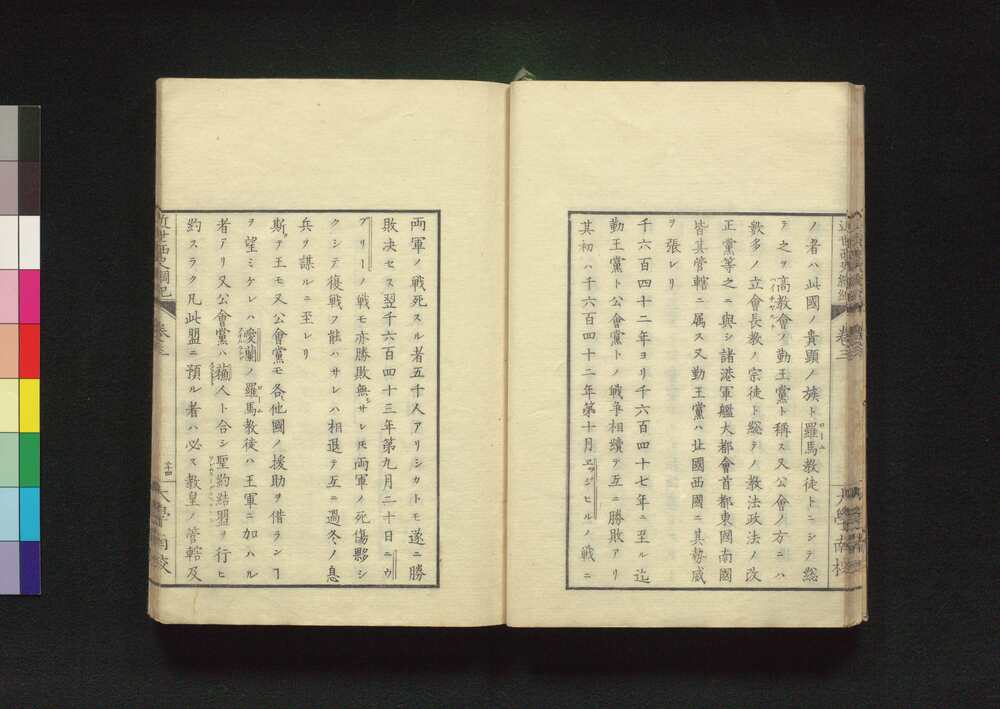 ノ者ハ此國ノ貴顯ノ族ト羅馬教徒トニシテ総
テ之ヲ高教會ノ勤王黨ト稱ス又公會ノ方ニハ
數多ノ立會長教ノ宗徒ト総テノ教法政法ノ改
正黨等之ニ與シ諸港軍艦大都會首都東國南國
皆其管轄ニ属ス又勤王黨ハ北國西國ニ其勢威
ヲ張レリ
千六百四十二年ヨリ千六百四十七年ニ至ル迄
勤王黨ト公會黨トノ戰爭相續テ互ニ勝敗アリ
其初ハ千六百四十二年第十月エッジヒルノ戰ニ
兩軍ノ戰死スル者五千人アリシカトモ遂ニ勝
敗决セス翌千六百四十三年第九月二十日ニウ
ブリーノ戰モ亦勝敗無サレ𪜈両軍ノ死傷夥シ
クシテ復戰フ能ハサレハ相退テ互ニ過冬ノ息
兵ヲ謀ルニ至レリ
斯テ王モ又公會黨モ各他國ノ援助ヲ借ランヿ
ヲ望ミケレハ愛蘭ノ羅馬教徒ハ王軍ニ加ハル
者アリ又公會黨ハ蘓人ト合シ聖約結盟ヲ行ヒ
約スラク凡此盟ニ預ル者ハ必ス教皇ノ管轄及
近世西史綱紀
卷三
大學南校